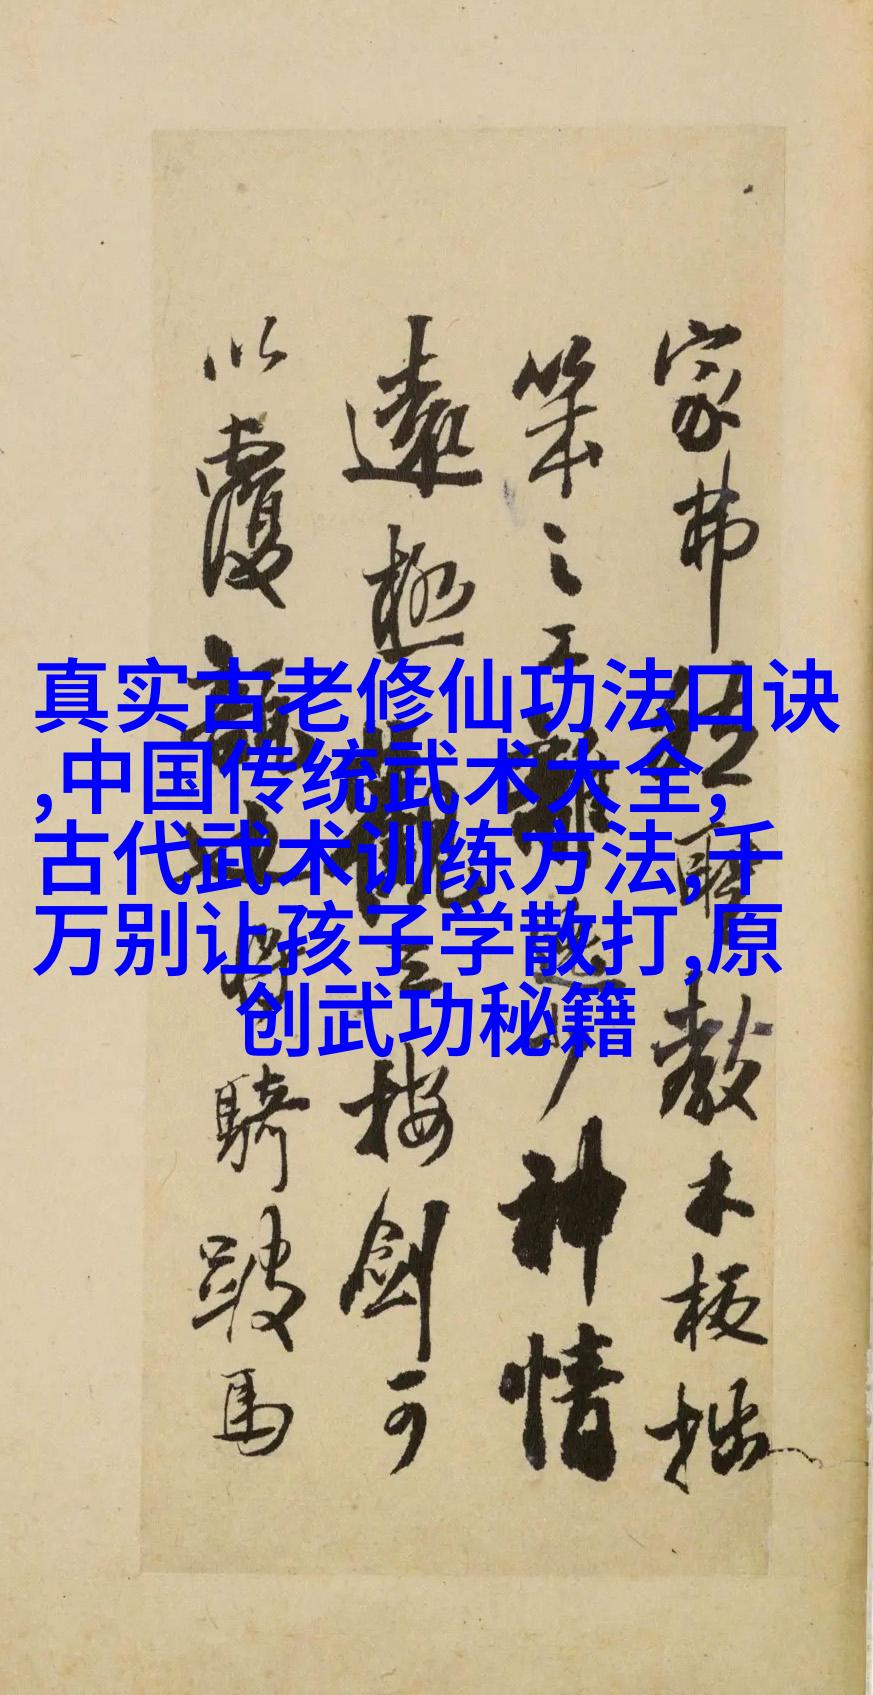 真实古老修仙功法口诀
,中国传统武术大全,
古代武术训练方法,千
万别让孩子学散打,原
创武功秘籍
家弗
教木板拙
筆之
神情
遠極
按劍可
以覆
騎跛馬